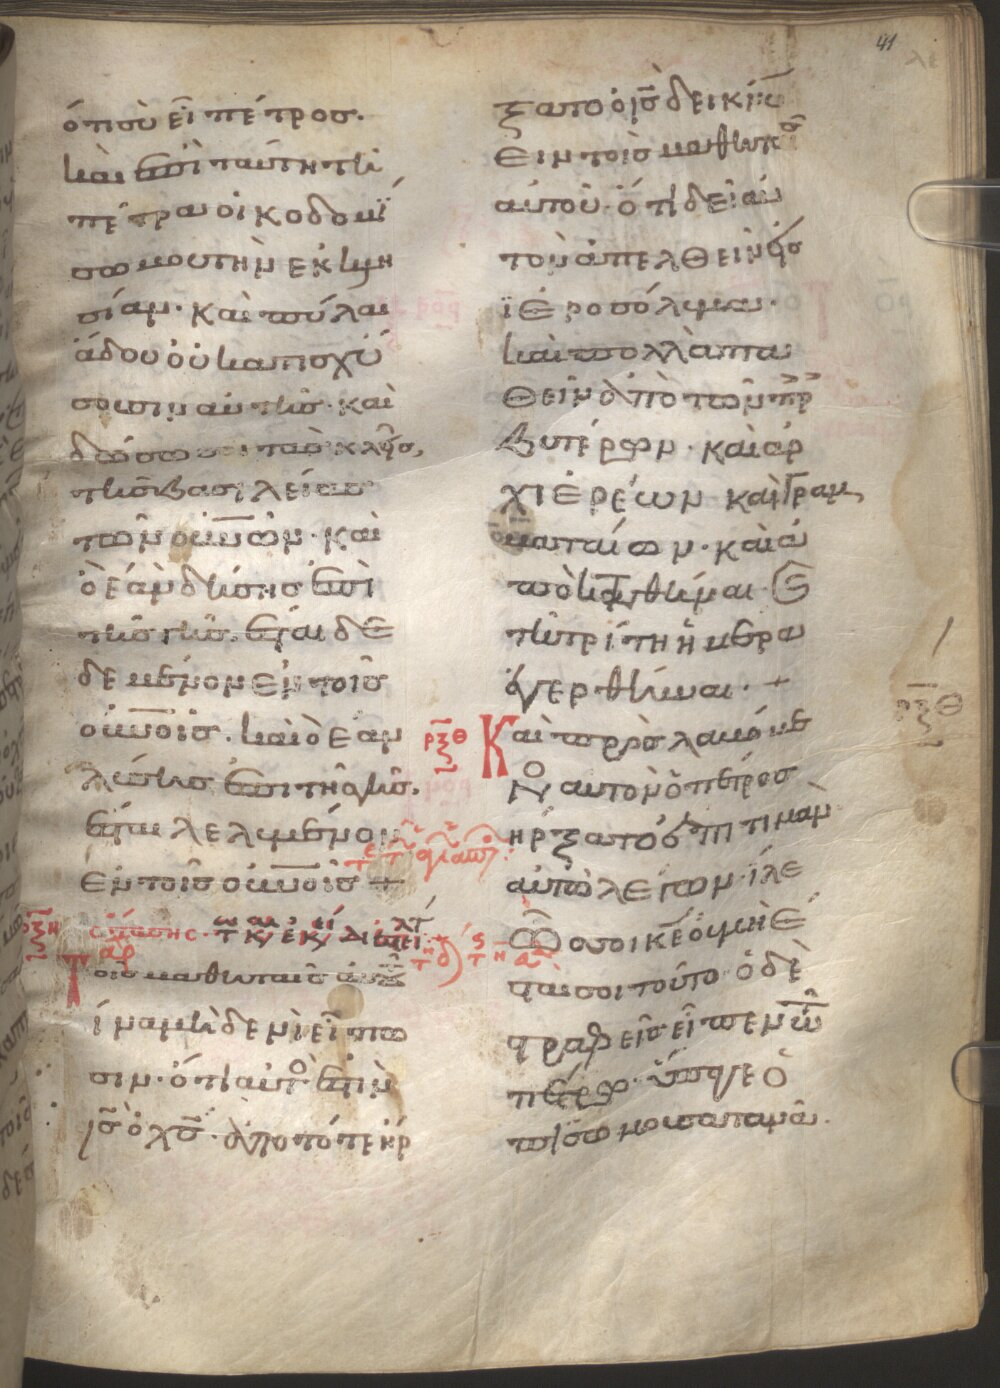 41
ὅτι σὺ εἶ πέτρος.
καὶ ἐπὶ ταύτη τῆ
πέτρα οἰκοδομή
σω μου τὴν ἐκκλη
σίαν· καὶ πύλαι
ἅδου οὐ κατισχύ
σουσιν αὐτῆς· καὶ
δώσω σοι τὰς κλεῖς,
τῆς βασιλείας
τῶν οὐνῶν· καὶ
ὃ ἐὰν δήσης ἐπὶ
τῆς γῆς. ἔσται δε
δεμένον ἐν τοῖς
οὐνοῖς. καὶ ὃ ἐὰν
λύσης ἐπὶ τῆς γῆς.
ἔσται λελυμένον
ἐν τοῖς οὐνοῖς +
ρξη
Τοῖς μαθηταῖς αὐτοῦ
ἵνα μηδενὶ εἴπω
σιν· ὅτι αὐτός ἐστιν
ις ὁ χς. ἀπὸ τότε ἤρ
ξατο ὁ ις δεικνύ
ειν τοῖς μαθηταῖς
αὐτοῦ· ὅτι δεῖ αὐ
τὸν ἀπελθεῖν εἰς
ϊεροσόλυμα·
καὶ πολλὰ πα
θεῖν ἀπὸ τῶν πρ
βυτέρων· καὶ ἀρ
χιερέων καὶ γραμ
ματαίων· καὶ ἀ
ποκτανθῆναι· καὶ
τῆ τρίτη ἡμέρα
ἐγερθῆναι· +
ρξθ Καὶ προσλαβόμε
νο αὐτὸν ὁ πέτρος
ἤρξατο ἐπιτιμᾶν
αὐτῶ λέγων· ἵλε
ώς σοι κε οὐ μὴ ἔ
σται σοι τοῦτο· ὁ δὲ
στραφεὶς εἶπεν τῶ
πέτρω· ὕπαγε ὀ
πίσω μου σατανᾶ.
ρξθ